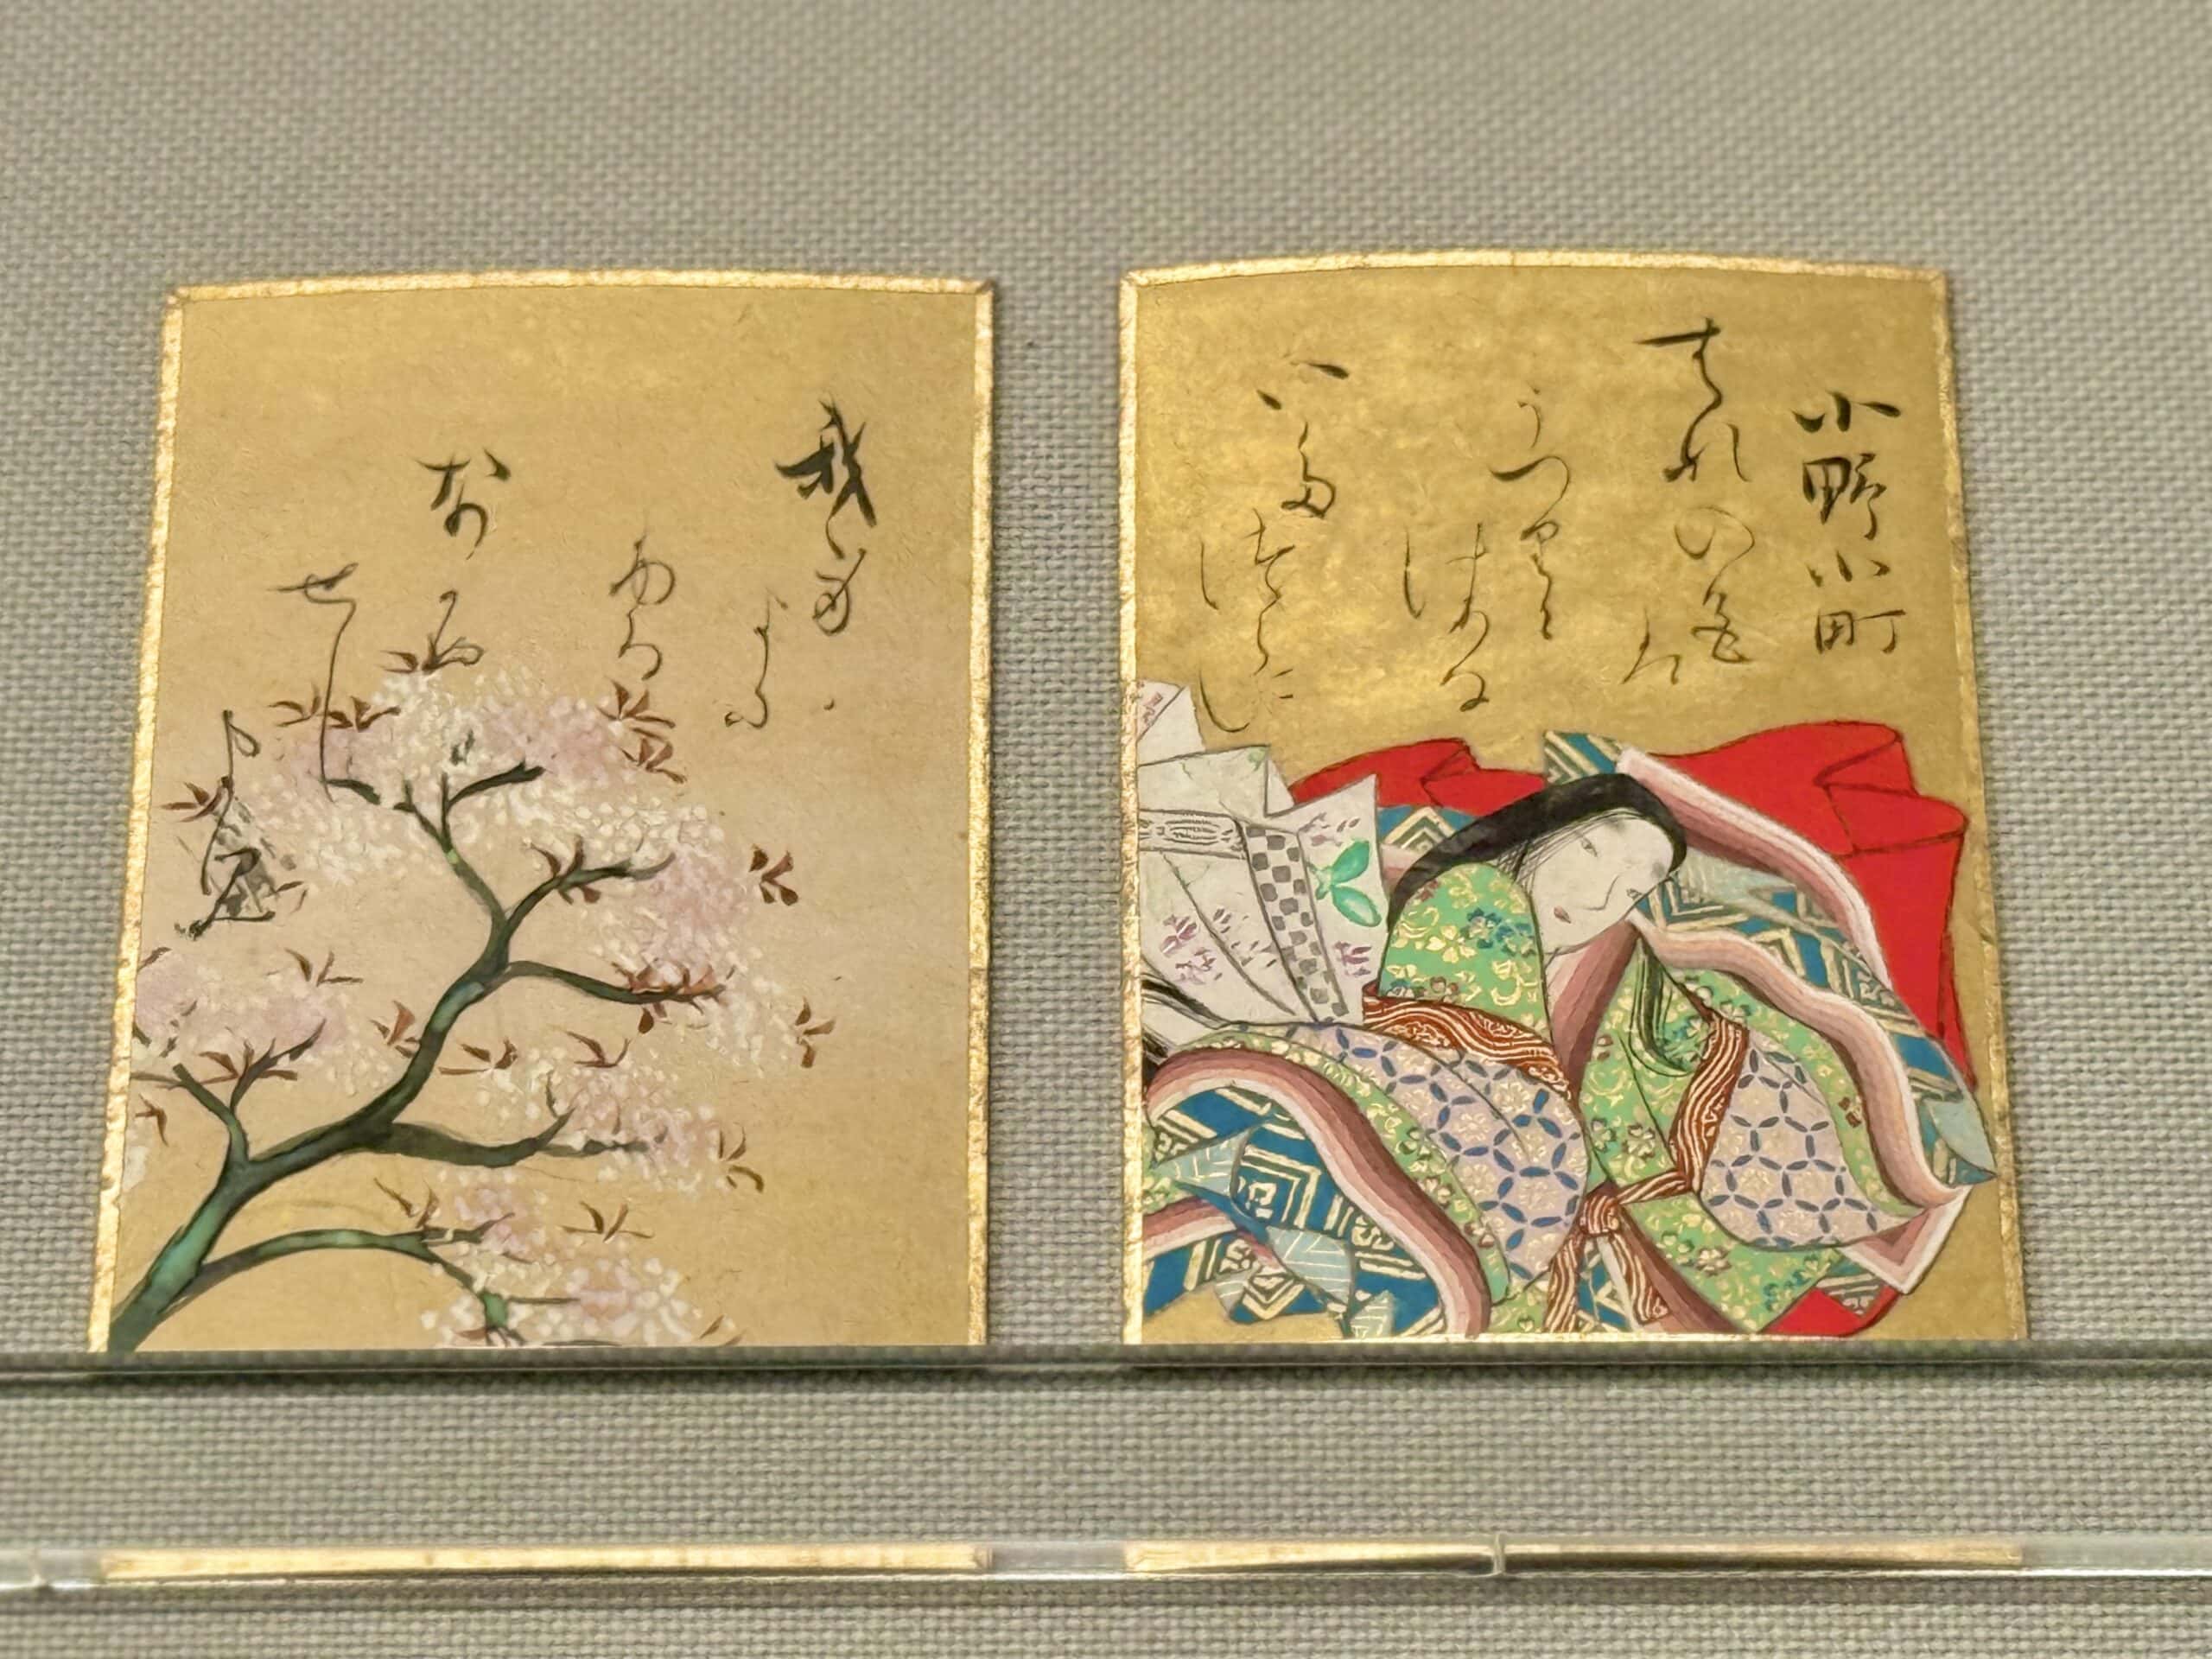 小野小町
はなの色
は
うつりに
けりな
いたつら
に
我身
よに
ふる
なかめ
せし
まに